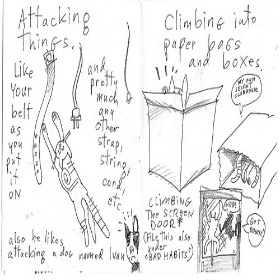 Attacking
Things.
Like
your
belt
as
you
put
it
on
and
pretty
much
any
other
strap,
string,
cord,
etc.
also he likes
attacking a dog named Ivan
Climbing into
paper bags
and boxes
MY OWN
SECRET
CLUBHOUSE
CLIMBING
THE SCREEN
DOOR
(File this also
under
BAD HABITS)
GUS!
GET
DOWN!